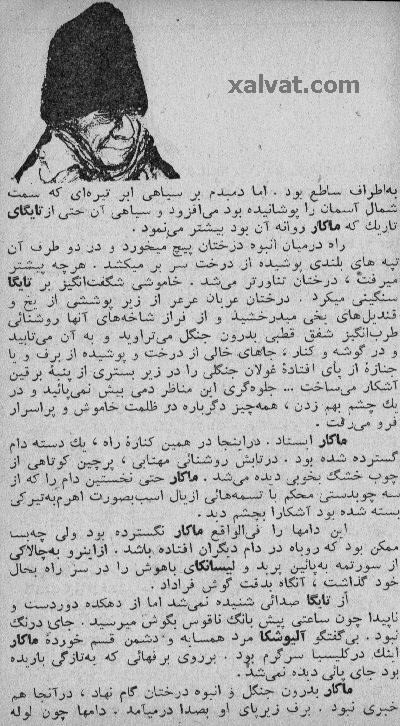 xalvat.com
به‌اطراف ساطع بود . اما دمبدم بر سیاهی ابر تیره‌ای که سمت
شمال آسمان را پوشانیده بود می‌افزود و سیاهی آن حتی از تایگای
تاریك که ماکار روانه آن بود بیشتر می‌نمود .
راه درمیان انبوه درختان پیچ میخورد و در دو طرف آن
تپه های بلندی پوشیده از درخت سر بر میکشد . هرچه پیشتر
میرفت ، درختان تناورتر می‌شد . خاموشی شگفت‌انگیز بر تایگا
سنگینی میکرد . درختان عریان عرعر از زیر پوششی از یخ و
قندیل‌های یخی میدرخشید و از فراز شاخه‌های آنها روشنائی
طرب‌انگیز شفق قطبی بدرون جنگل می‌تراوید و به آن می‌تابید
و در گوشه و کنار ، جاهای خالی از درخت و پوشیده از برف و یا
جنازهٔ از پای افتادهٔ غولان جنگلی را در زیر بستری از پنبهٔ برفین
آشکار می‌ساخت ... جلوه‌گری این مناظر دمی بیش نمی‌پائید و در
یك چشم بهم زدن ، همه‌چیز دگرباره در ظلمت خاموش و پراسرار
فرو می‌رفت .
ماکار ایستاد . دراینجا در همین کنارهٔ راه ، یك دسته دام
گسترده شده بود . درتابش روشنائی مهتابی ، پرچین کوتاهی از
چوب خشگ بخوبی دیده می‌شد . ماکار حتی نخستین دام را که از
سه چوبدستی محکم با تسمه‌هائی ازیال اسب‌بصورت اهرم‌به‌تیرکی
بسته شده بود آشکارا بچشم دید .
این دامها را فی‌الواقع ماکار نگسترده بود ولی چه‌بسا
ممکن بود که روباه در دام دیگران افتاده باشد . ازاینرو به‌چالاکی
از سورتمه به‌پائین پرید و لیسانکای باهوش را در سر راه بحال
خود گذاشت ، آنگاه بدقت گوش فراداد .
از تایگا صدائی شنیده نمی‌شد اما از دهکده دوردست و
ناپیدا چون ساعتی پیش بانگ ناقوس بگوش میرسید . جای درنگ
نبود . بی‌گفتگو آلیوشکا مرد همسایه و دشمن قسم خوردهٔ ماکار
اینك درکلیسیا سرگرم بود . برروی برفهائی که به‌تازگی باریده
بود جای پائی دیده نمی‌شد .
ماکار بدرون جنگل و انبوه درختان گام نهاد ، درآنجا هم
خبری نبود . برف زیرپای او بصدا درمیامد . دامها چون لوله